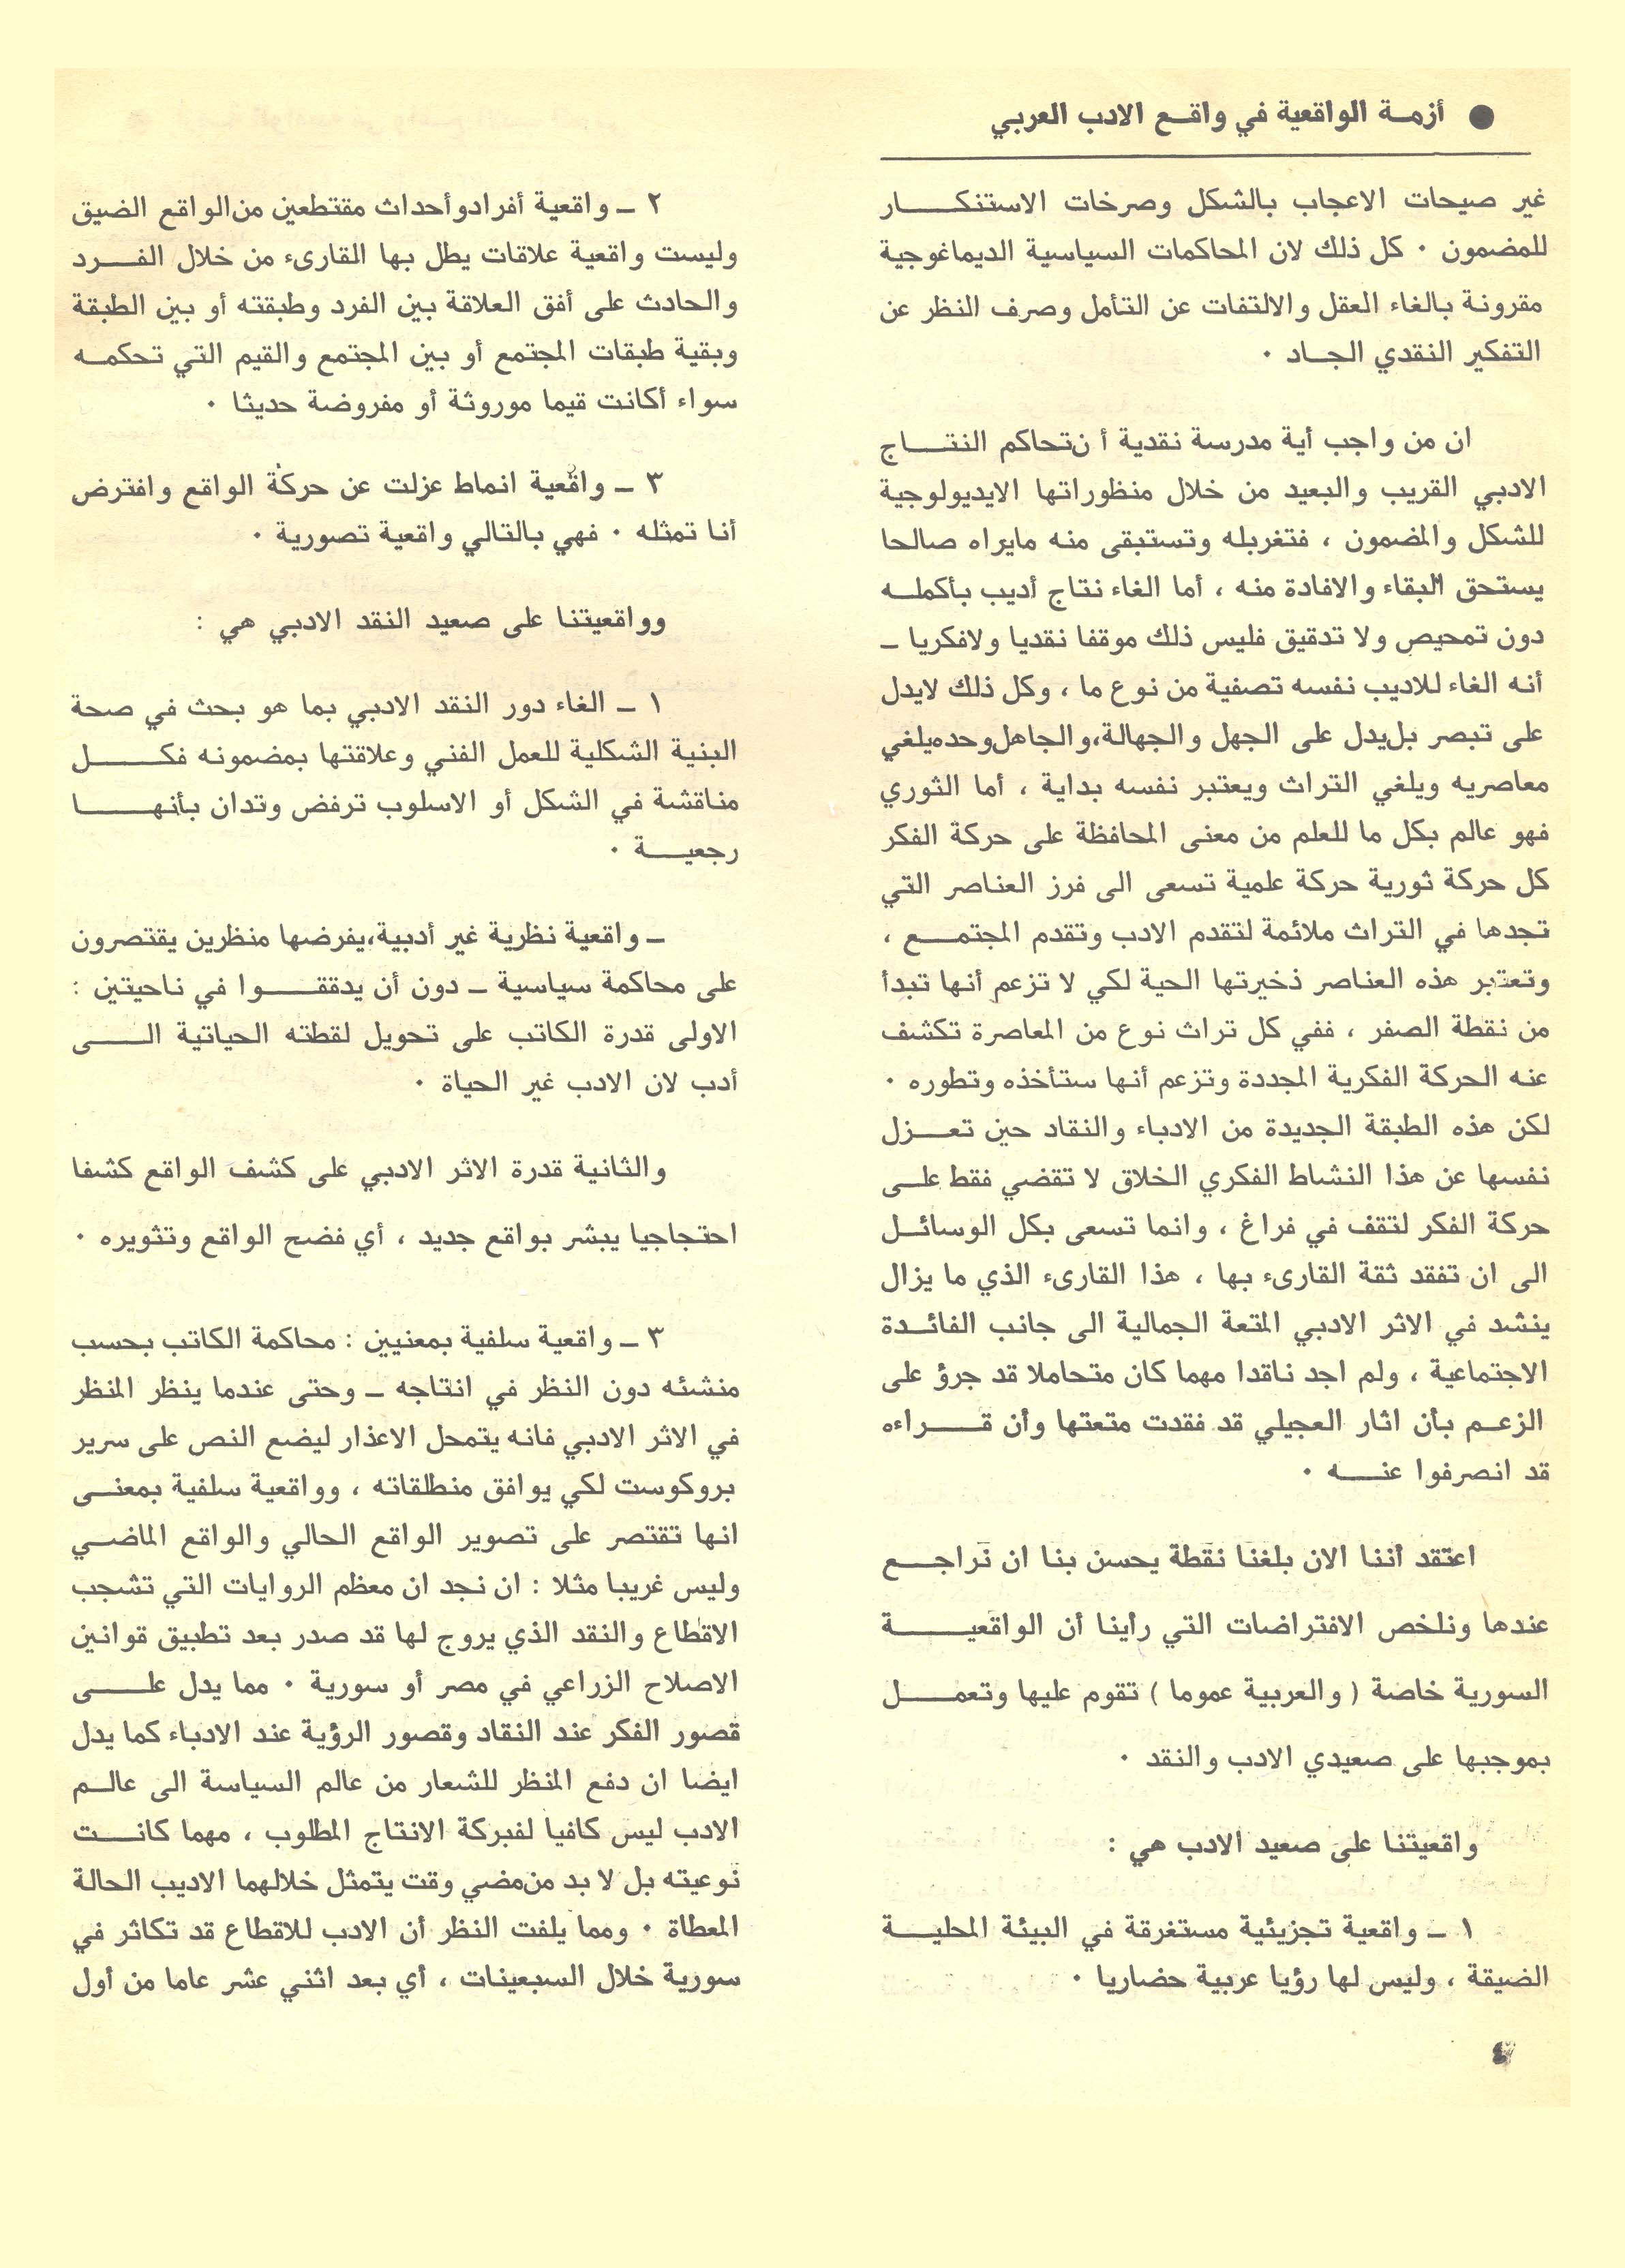 ● أزمــة الواقعية في واقــع الادب العربي
غير صيحات الاعجاب بالشكل وصرخات الاستنكـــــار
للمضمون ٠ كل ذلك لان المحاكمات السياسية الديماغوجية
مقرونة بالغاء العقل والالتفات عن التأمل وصرف النظر عن
التفكير النقدي الجــاد ٠
ان من واجب أية مدرسة نقدية أ ن تحاكم النتـــاج
الادبي القريب والبعيد من خلال منظوراتها الايديولوجية
للشكل والمضمون ، فتغربله وتستبقى منه مايراه صالحا
يستحق البقاء والافادة منه ، أما الغاء نتاج أديب بأكملــه
دون تمحيص ولا تدقيق فليس ذلك موقفا نقديا ولافكريا ــ
أنه الغاء للاديب نفسه تصفية من نوع ما ، وكل ذلك لايدل
على تبصر بل يدل على الجهل والجهالة،والجاهل وحده يلغي
معاصريه ويلغي التراث ويعتبر نفسه بداية ، أما الثوري
فهو عالم بكل ما للعلم من معنى المحافظة على حركة الفكر
كل حركة ثورية حركة علمية تسعى الى فرز العناصر التي
تجدها في التراث ملائمة لتقدم الادب وتقدم المجتمــع ،
وتعتبر هذه العناصر ذخيرتها الحية لكي لا تزعم أنها تبدأ
من نقطة الصفر ، ففي كل تراث نوع من المعاصرة تكشف
عنه الحركة الفكرية المجددة وتزعم أنها ستأخذه وتطوره ٠
لكن هذه الطبقة الجديدة من الادباء والنقاد حين تعــزل
نفسها عن هذا النشاط الفكري الخلاق لا تقضي فقط علــى
حركة الفكر لتقف في فراغ ، وانما تسعى بكل الوسائــل
الى ان تفقد ثقة القارىء بها ، هذا القارىء الذي ما يزال
ينشد في الاثر الادبي المتعة الجمالية الى جانب الفائــدة
الاجتماعية ، ولم اجد ناقدا مهما كان متحاملا قد جرؤ على
الزعــم بأن اثار العجيلي قد فقدت متعتها وأن قـــراءه
قد انصرفوا عنـــه ٠
اعتقد أننا الان بلغنا نقطة يحسن بنا ان نراجــع
عندها ونلخص الافتراضات التي رأينا أن الواقعيـــــة
السورية خاصة ( والعربية عموما ) تقوم عليها وتعمــــل
بموجبها على صعيدي الادب والنقد ٠
واقعيتنا على صعيد الادب هي :
١ ــ واقعية تجزيئية مستغرقة في البيئة المحليـــة
الضيقة ، وليس لها رؤيا عربية حضاريا ٠
٢ ــ واقعية أفرادوأحداث مقتطعين من الواقع الضيق
وليست واقعية علاقات يطل بها القارىء من خلال الفـــرد
والحادث على أفق العلاقة بين الفرد وطبقته أو بين الطبقة
وبقية طبقات المجتمع أو بين المجتمع والقيم التي تحكمــه
سواء أكانت قيما موروثة أو مفروضة حديثا ٠
٣ ــ واقعية انماط عزلت عن حركة الواقع وافترض
أنا تمثله ٠ فهي بالتالي واقعية تصورية ٠
وواقعيتنا على صعيد النقد الادبي هي :
١ ــ الغاء دور النقد الادبي بما هو بحث في صحة
البنية الشكلية للعمل الفني وعلاقتها بمضمونه فكــــل
مناقشة في الشكل أو الاسلوب ترفض وتدان بأنهـــــا
رجعيـــة ٠
ــ واقعية نظرية غير أدبية،يفرضها منظرين يقتصرون
على محاكمة سياسية ــ دون أن يدققــــوا في ناحيتين :
الاولى قدرة الكاتب على تحويل لقطته الحياتية الـــى
أدب لان الادب غير الحياة ٠
والثانية قدرة الاثر الادبي على كشف الواقع كشفا
احتجاجيا يبشر بواقع جديد ، أي فضح الواقع وتثويره ٠
٣ ــ واقعية سلفية بمعنيين : محاكمة الكاتب بحسب
منشئه دون النظر في انتاجه ــ وحتى عندما ينظر المنظر
في الاثر الادبي فانه يتمحل الاعذار ليضع النص على سرير
بروكوست لكي يوافق منطلقاته ، وواقعية سلفية بمعنــى
انها تقتصر على تصوير الواقع الحالي والواقع الماضــي
وليس غريبا مثلا : ان نجد ان معظم الروايات التي تشجب
الاقطاع والنقد الذي يروج لها قد صدر بعد تطبيق قوانين
الاصلاح الزراعي في مصر أو سورية ٠ مما يدل علـــى
قصور الفكر عند النقاد وقصور الرؤية عند الادباء كما يدل
ايضا ان دفع المنظر للشعار من عالم السياسة الى عالــم
الادب ليس كافيا لفبركة الانتاج المطلوب ، مهما كانــت
نوعيته بل لا بد من مضي وقت يتمثل خلالهما الاديب الحالة
المعطاة ٠ ومما يلفت النظر أن الادب للاقطاع قد تكاثر في
سورية خلال السبعينات ، أي بعد اثني عشر عاما من أول